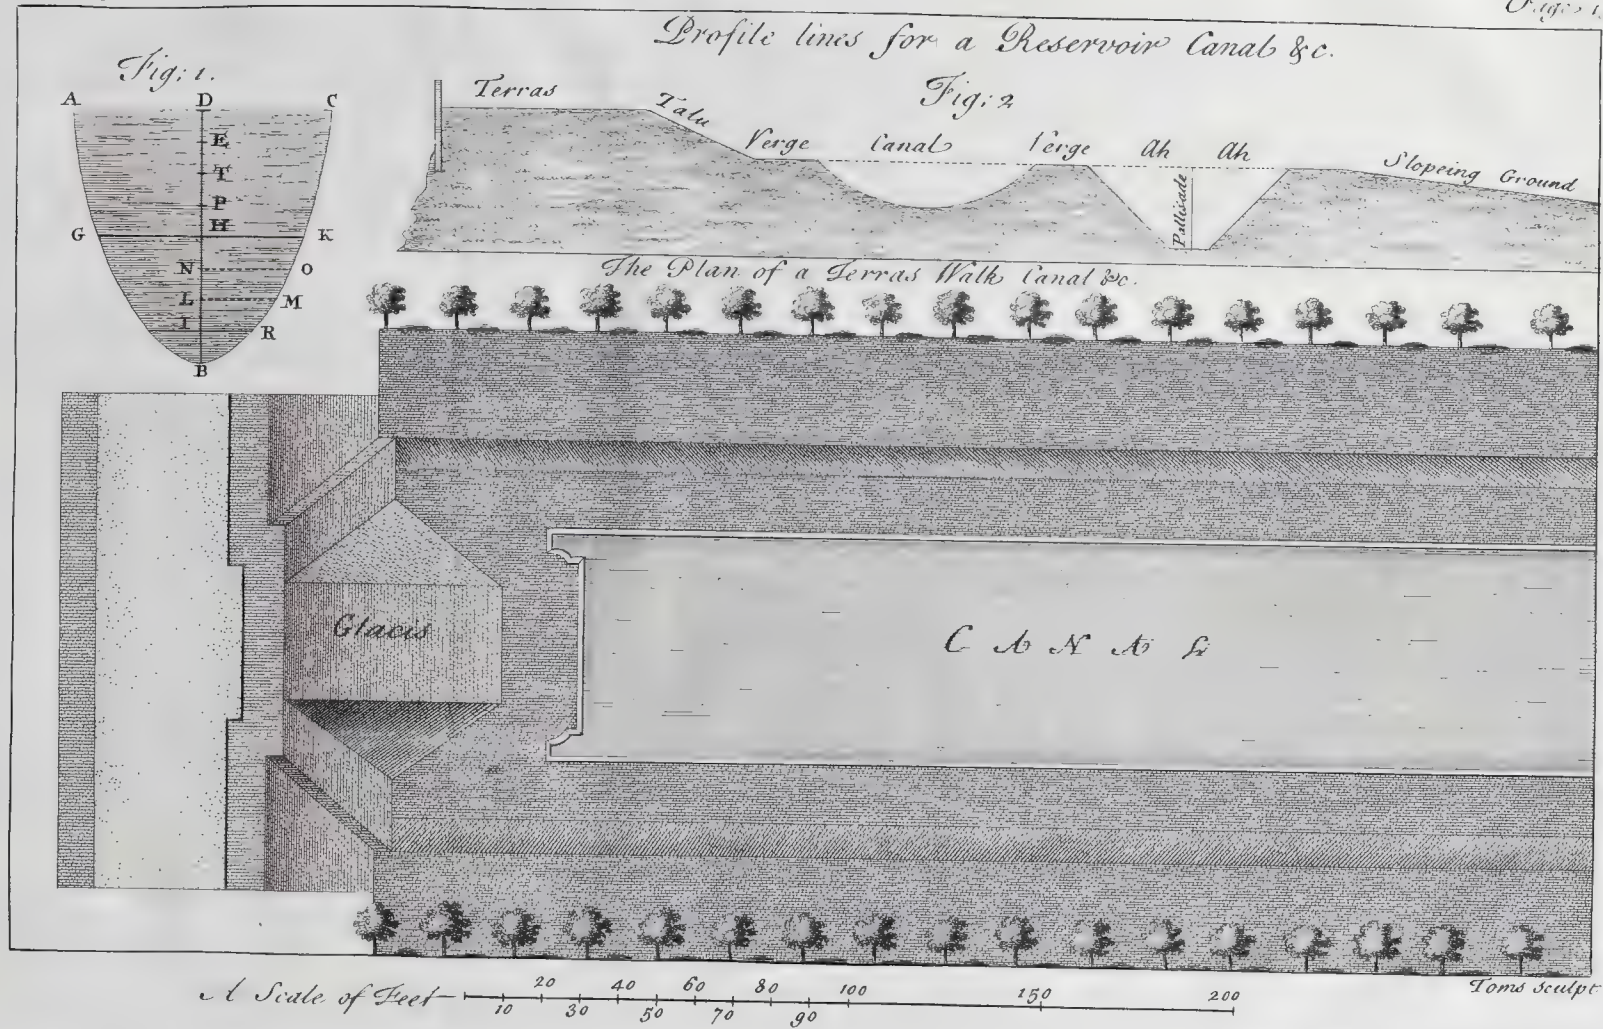 Page
Profile lines for a Reservoir Canal &c.
Fig: 1.
A D C
E
T
P
H
G K
N O
L M
I R
B
Fig: 2
Terras Talu Verge Canal Verge Ah Ah Slopeing Ground
Pallisade
The Plan of a Terras Walk Canal &c.
Glacis
CANAL
A Scale of Feet
20 40 60 80 100 150 200
10 30 50 70 90
Toms sculpt